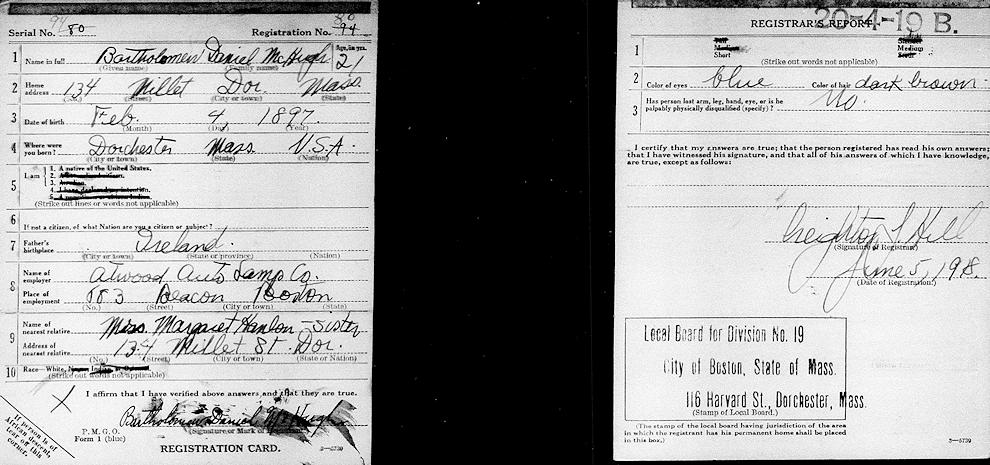 Serial No. 80 Registration No. 94
1 Name in full Bartholomew Daniel McHugh Age, in yrs. 21
(Given name) (Family name)
2 Home address 134 Millet Dor. Mass.
(No.) (Street) (City or town) (State)
3 Date of birth Feb. 4, 1897
(Month) (Day) (Year)
4 Where were you born? Dorchester Mass. U.S.A.
(City or town) (State) (Nation)
5 I am 1. A native of the United States.
2.
3.
4.
5.
(Strike out lines or words not applicable)
6 If not a citizen, of what Nation are you a citizen or subject?
7 Father's birthplace Ireland.
(City or town) (State or province) (Nation)
8 Name of employer Atwood Auto Lamp Co.
Place of employment 883 Beacon Boston
(No.) (Street) (City or town) (State)
9 Name of nearest relative Miss. Margaret Hanlon - Sister
Address of nearest relative 134 Millet St. Dor.
(No.) (Street) (City or town) (State or Nation)
10 Race—White,
(Strike out words not applicable)
I affirm that I have verified above answers and that they are true.
X
Bartholomew Daniel McHugh
(Signature or Mark of
P. M. G. O.
Form 1 (blue)
REGISTRATION CARD.
If person is of African descent, tear off this corner.
20-4-19 B.
REGISTRAR'S REPORT
1 Short Medium
(Strike out words not applicable)
2 Color of eyes blue Color of hair dark brown
3 Has person lost arm, leg, hand, eye, or is he palpably physically disqualified (specify)? No.
I certify that my answers are true; that the person registered has read his own answers;
that I have witnessed his signature, and that all of his answers of which I have knowledge,
are true, except as follows:
Creighton S Hill
(Signature of Registrar)
June 5, 1918.
(Date of Registration)
Local Board for Division No. 19
City of Boston, State of Mass.
116 Harvard St., Dorchester, Mass.
(Stamp of Local Board.)
(The stamp of the local board having jurisdiction of the area
in which the registrant has his permanent home shall be placed
in this box.)
3—6739